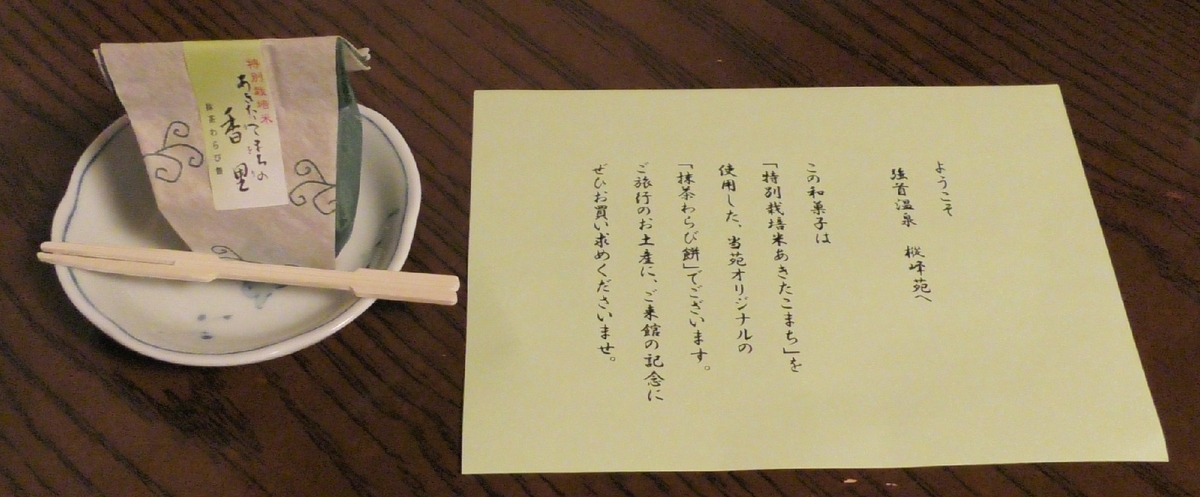 特別栽培米
あきたこまちの
香里
抹茶わらび餅
ようこそ
強首温泉 樅峰苑へ
この和菓子は
「特別栽培米あきたこまち」を
使用した、当苑オリジナルの
「抹茶わらび餅」でございます。
ご旅行のお土産に、ご来館の記念に
ぜひお買い求めくださいませ。